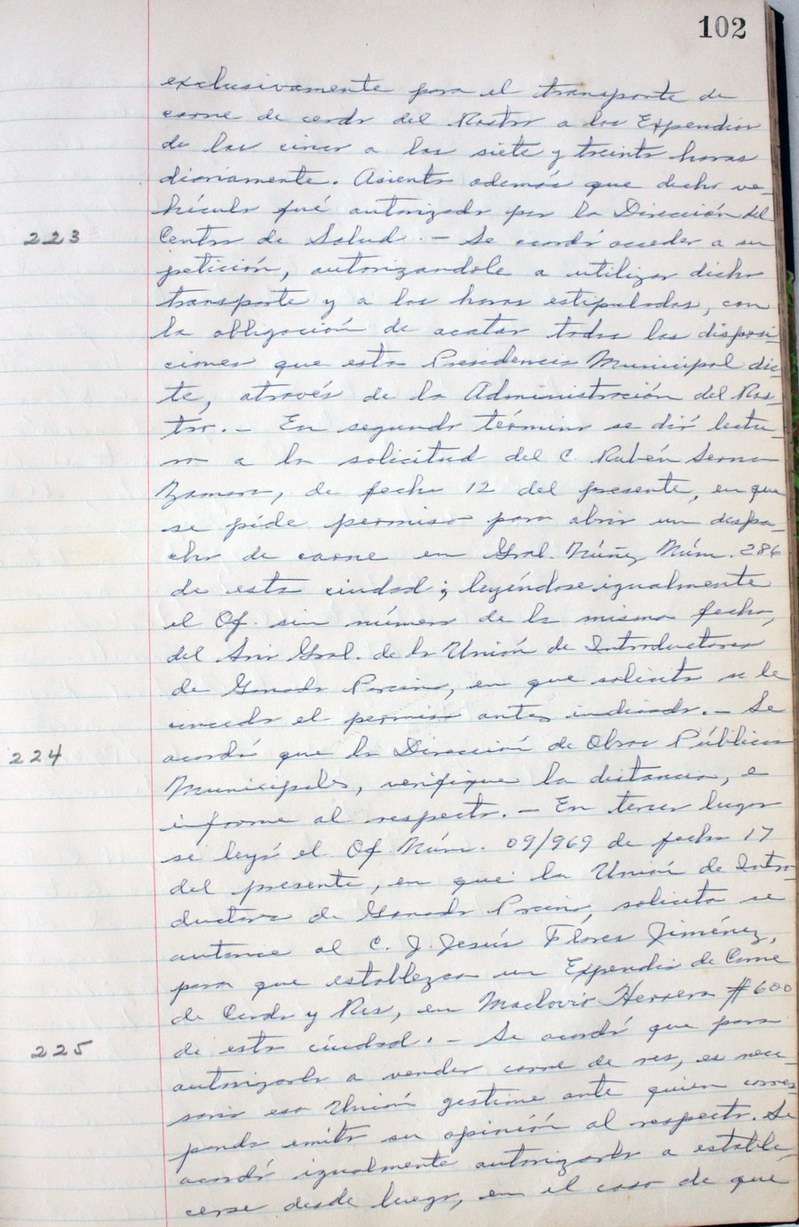 102
exclusivamente para el transporte de
carne de cerdo del Rastro a los Expendios
de las cinco a las siete y treinta horas
diariamente. Asienta además que dicho ve-
hículo fué autorizado por la Dirección del
223 Centro de Salud. - Se acordó acceder a su
petición, autorizandole a utilizar dicho
transporte y a las horas estipuladas, con
la obligación de acatar todas las disposi-
ciones que esta Presidencia Municipal dic-
te, através de la Administración del Ras-
tro. - En segundo término se dió lectu-
ra a la solicitud del C. Rubén Serna
Zamora, de fecha 12 del presente, en que
se pide permiso para abrir un despa-
cho de carne en Gral. Núñez Núm. 286
de esta ciudad; leyéndose igualmente
el Of. sin número de la misma fecha,
del Srio Gral. de la Unión de Introductores
de Ganado Porcino, en que solicita se le
conceda el permiso antes indicado. - Se
224 acordó que la Dirección de Obras Públicas
Municipales, verifique la distancia, e
informe al respecto. - En tercer lugar
se leyó el Of Núm. 09/969 de fecha 17
del presente, en que la Unión de Intro-
ductores de Ganado Porcino, solicita se
autorice al C. J. Jesús Flores Jiménez,
para que establezca un Expendio de Carne
de Cerdo y Res, en Maclovio Herrera #600
de esta ciudad. - Se acordó que para
225 autorizarlo a vender carne de res, es nece-
sario esa Unión gestione ante quien corres-
ponda emita su opinión al respecto. Se
acordó igualmente autorizarlo a estable-
cerse desde luego, en el caso de que